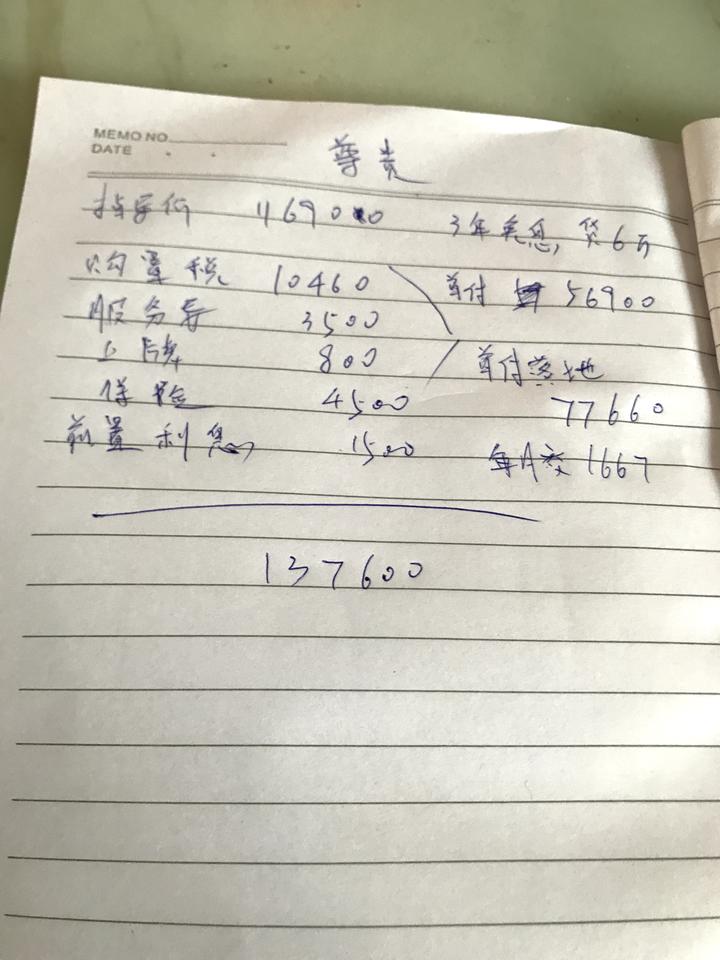 MEMO NO.
DATE
尊贵
指导价 116900 3年免息, 贷6万
购置税 10460 首付 56900
服务费 3500
上牌 800 首付落地
保险 4500 77660
前置利息 1500 每月交1667
137600